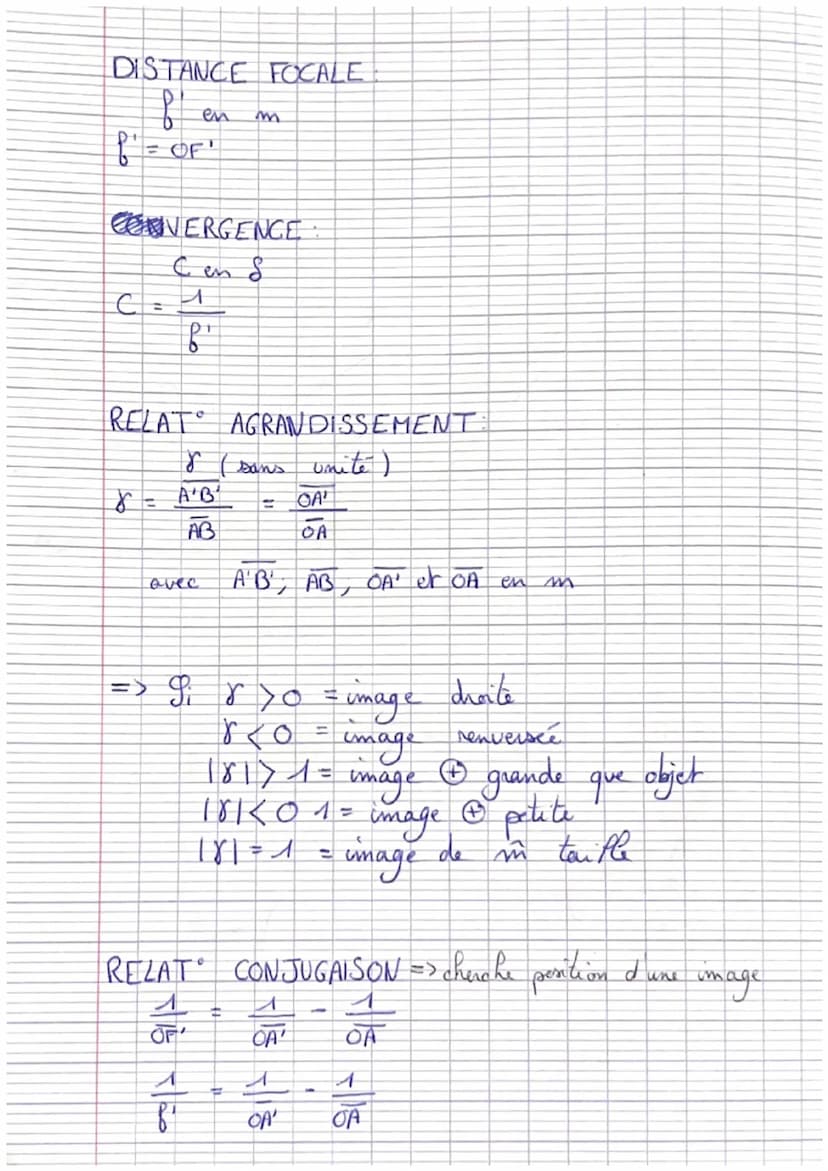 DISTANCE FOCALE :
f' en m
f' = OF'
VERGENCE :
C en δ
C = 1/f'
RELAT° AGRANDISSEMENT :
γ (sans unité)
γ = A̅'̅B̅'̅/A̅B̅ = O̅A̅'̅/O̅A̅
avec A̅'̅B̅'̅, A̅B̅, O̅A̅'̅ et O̅A̅ en m
=> Si γ > 0 = image droite
γ < 0 = image renversée
|γ| > 1 = image ⊕ grande que objet
|γ| < 0 1 = image ⊕ petite
|γ| = 1 = image de m̂ taille
RELAT° CONJUGAISON => cherche position d'une image
1/O̅F̅'̅ = 1/O̅A̅'̅ - 1/O̅A̅
1/f' = 1/O̅A̅'̅ - 1/O̅A̅